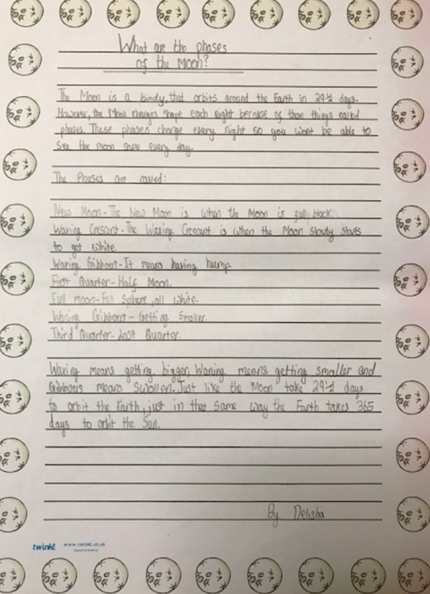 What are the phases
of the Moon?
The Moon is a body that orbits around the Earth in 29½ days.
However, the Moon changes shape each night because of these things called
phases. These phases change every night so you wont be able to
see the moon same every day.
The Phases are named:
New Moon-The New Moon is when the Moon is full black.
Waxing Crescent-The Waxing Crescent is when the Moon slowly starts
to get white.
Waxing Gibbous-It means having hump.
First Quarter-Half Moon.
Full moon-Full Sphere, all white.
Waning Gibbous-Getting Smaller.
Third Quarter-Last Quarter.
Waxing means getting bigger, Waning means getting smaller and
Gibbous means Swollen. Just like the Moon take 29½ days
to orbit the Earth, just in that same way the Earth takes 365
days to orbit the Sun.
By
twinkl www.twinkl.co.uk